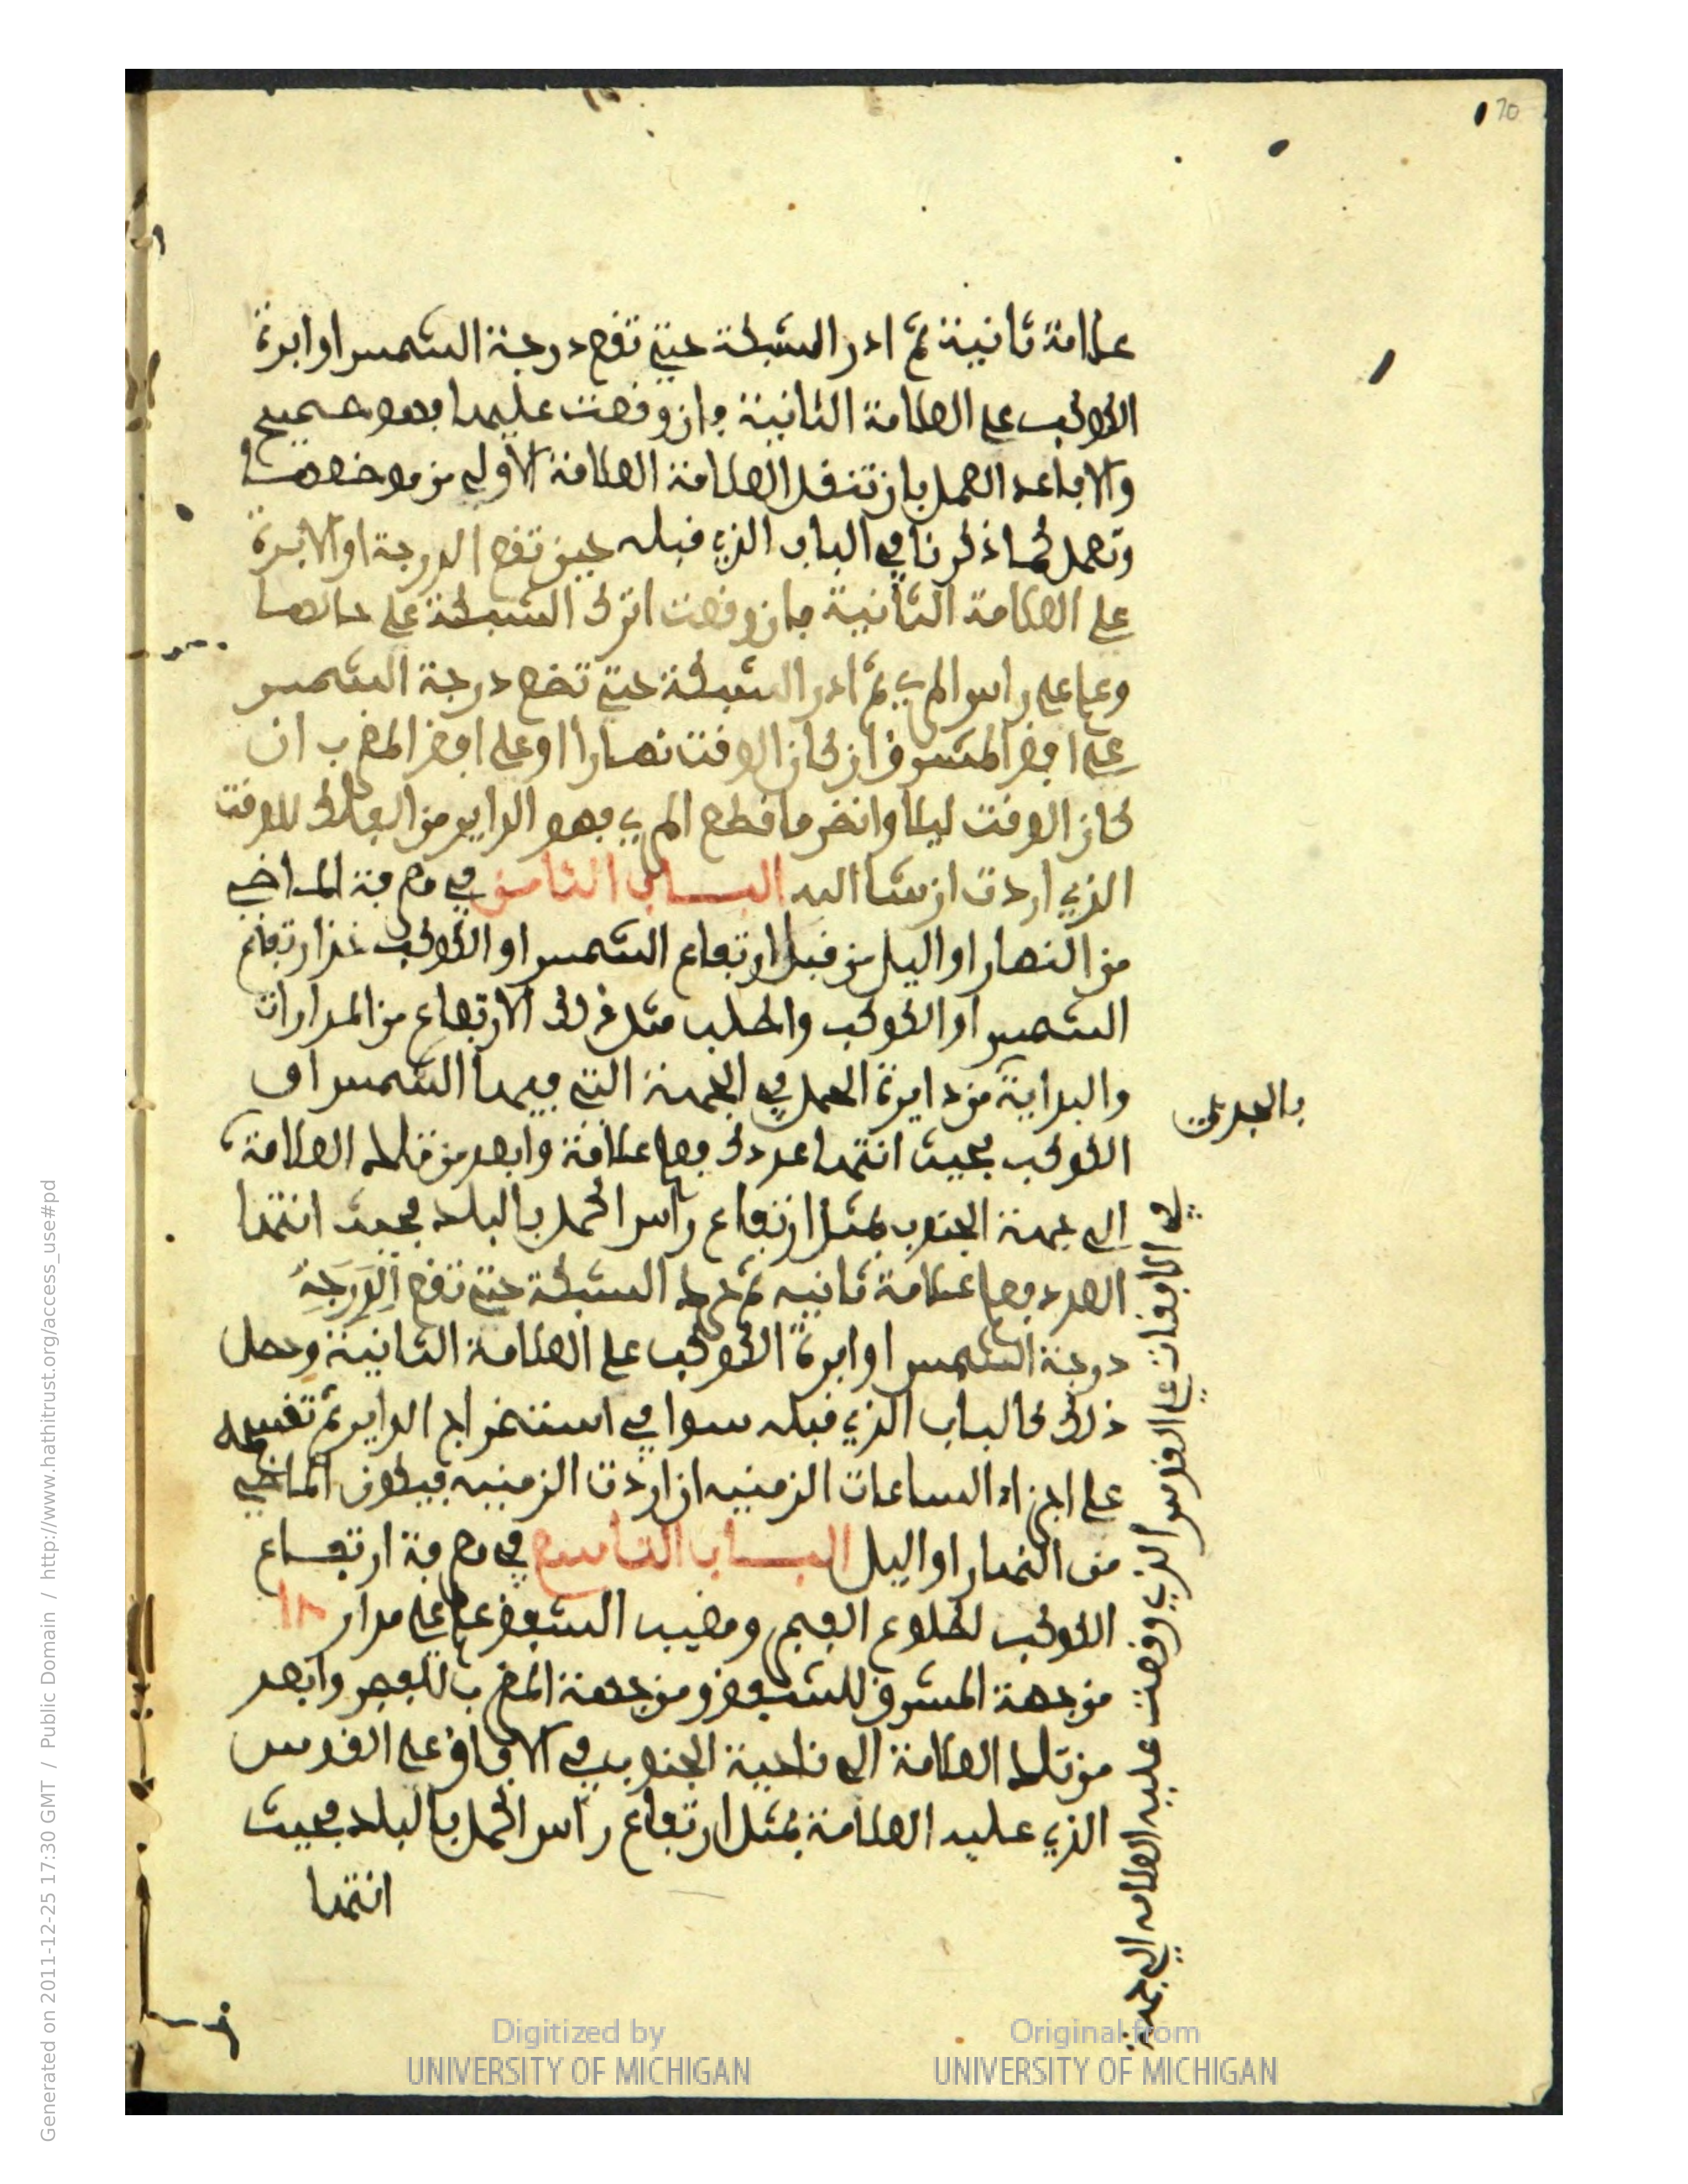 70
علامة ثانية ثم ادر الشبكة حتى تقع درجة الشمس او ابرة
الكوكب على العلامة الثانية فان وقعت عليها فهو صحيح
والا فاعد العمل بان تنقل العلامة العلامة الاولى من موضعها
وتعمل كما ذكرنا في الباب الذي قبله حين تقع الدرجة او الابرة
على العلامة الثانية فان وقعت اترك الشبكة على حالها
وعلم على راس المري ثم ادر الشبكة حتى تضع درجة الشمس
على افق المشرق ان كان الوقت نهارا او على افق المغرب ان
كان الوقت ليلا وانظر ما قطع المري فهو الداير من الفلك للوقت
الذي اردت ان شا الله البــاب الثامن في معرفة المــاضي
من النهار او اليل من قبل ارتفاع الشمس او الكوكب خذ ارتفاع
الشمس او الكوكب واطلب مثل ذلك الارتفاع من المدارات
والبداية من دايرة الحمل في الجهة التي فيها الشمس او
بالجدي
الكوكب بحيث انتها عددك فعلم علامة وابعد من تلك العلامة
الى جهة الجنوب بمثل ارتفاع راس الحمل بالبلد بحيث انتها
العدد فعلم علامة ثانيه ثم حرك الشبكة حتى تقع الدرجة
درجة الشمس او ابرة الكوكب على العلامة الثانية وحصل
ذلك كالباب الذي قبله سوا في استخراج الداير ثم تقسمه
على اجزاء الساعات الزمنيه ان اردت الزمنيه فيكون الماضي
من النهار او اليل البــاب التاسع في معرفة ارتفــاع
الكوكب لطلوع الفجر ومغيب الشفق علم على مدار ١٨
من جهة المشرق للشفق ومن جهة المغرب للفجر وابعد
من تلك العلامة الى ناحية الجنوب في الافاق على القوس
الذي عليه العلامة بمثل ارتفاع راس الحمل بالبلد بحيث
انتها
في الافاقات على القوس الذي وقعت عليه العلامه الى جهة
Digitized by
UNIVERSITY OF MICHIGAN
Original from
UNIVERSITY OF MICHIGAN
Generated on 2011-12-25 17:30 GMT / Public Domain / http://www.hathitrust.org/access_use#pd